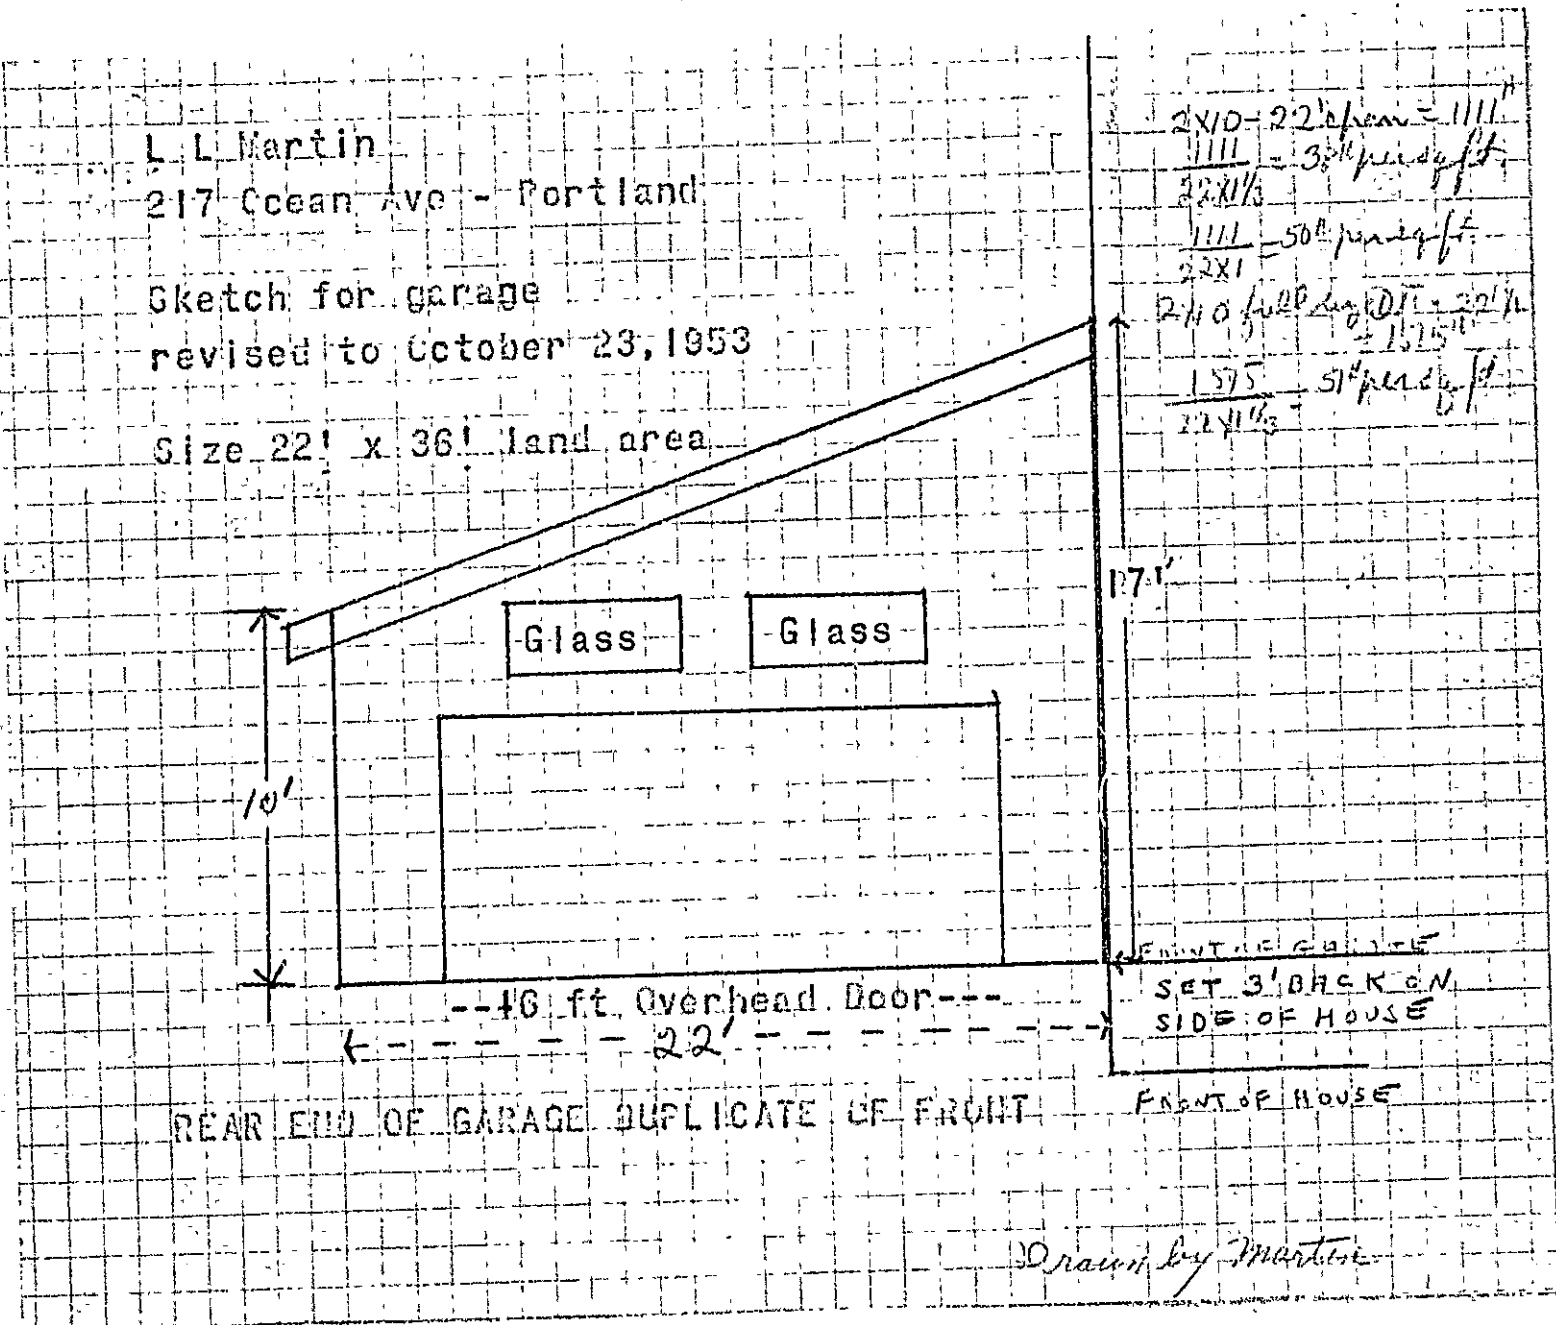 L L Martin
217 Ocean Ave - Portland
Sketch for garage
revised to October 23,1953
Size 22' x 36' land area
2X10 - 22' span = 1111#
1111 = 38# per sq ft
22X1⅓
1111 = 50# per sq ft
22X1
2X10 full
= 1575#
1575 = 51# per sq ft
22X1⅓
Glass
Glass
10'
--16 ft Overhead Door---
22'
FRONT OF GARAGE
SET 3' BACK ON
SIDE OF HOUSE
FRONT OF HOUSE
REAR END OF GARAGE DUPLICATE OF FRONT
Drawn by Martin